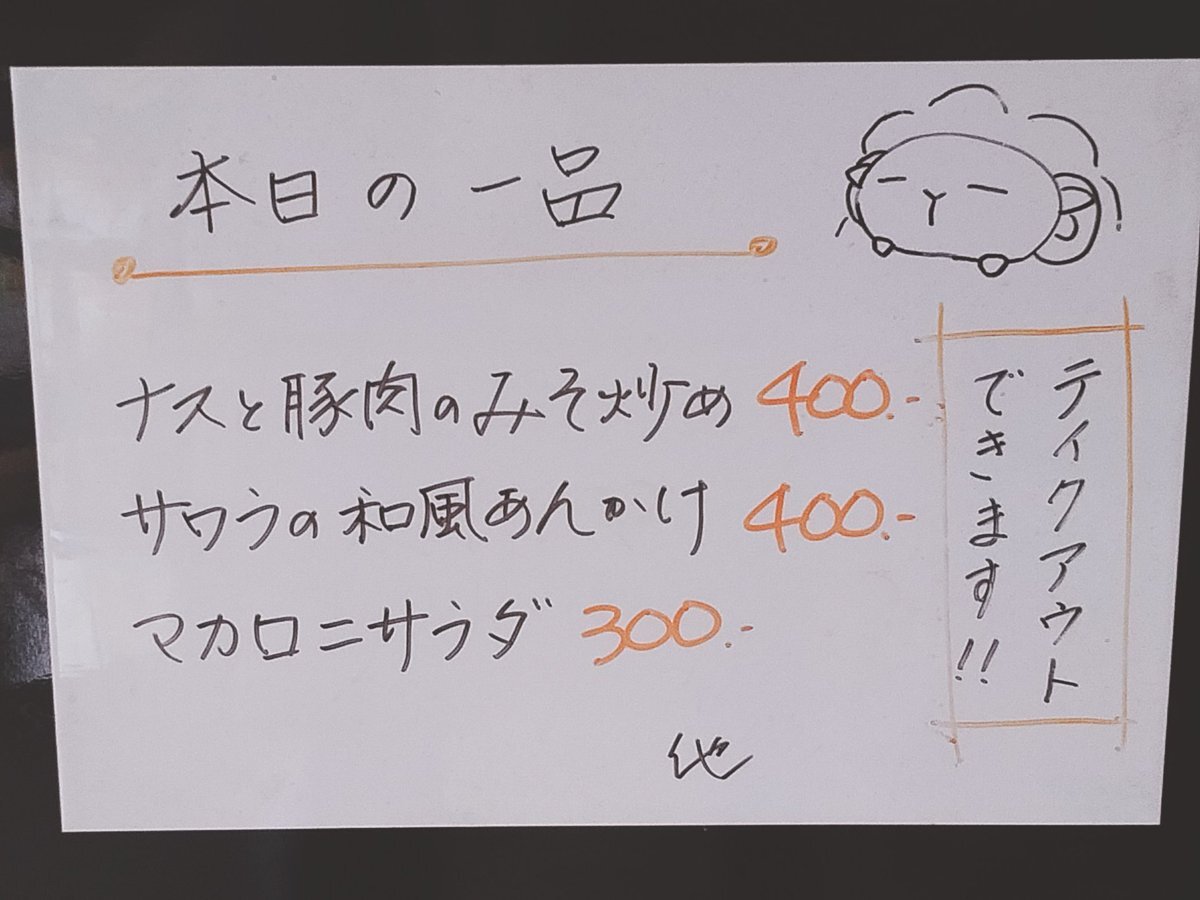 本日の一品
ナスと豚肉のみそ炒め 400.-
サワラの和風あんかけ 400.-
マカロニサラダ 300.-
他
テイクアウト
できます!!